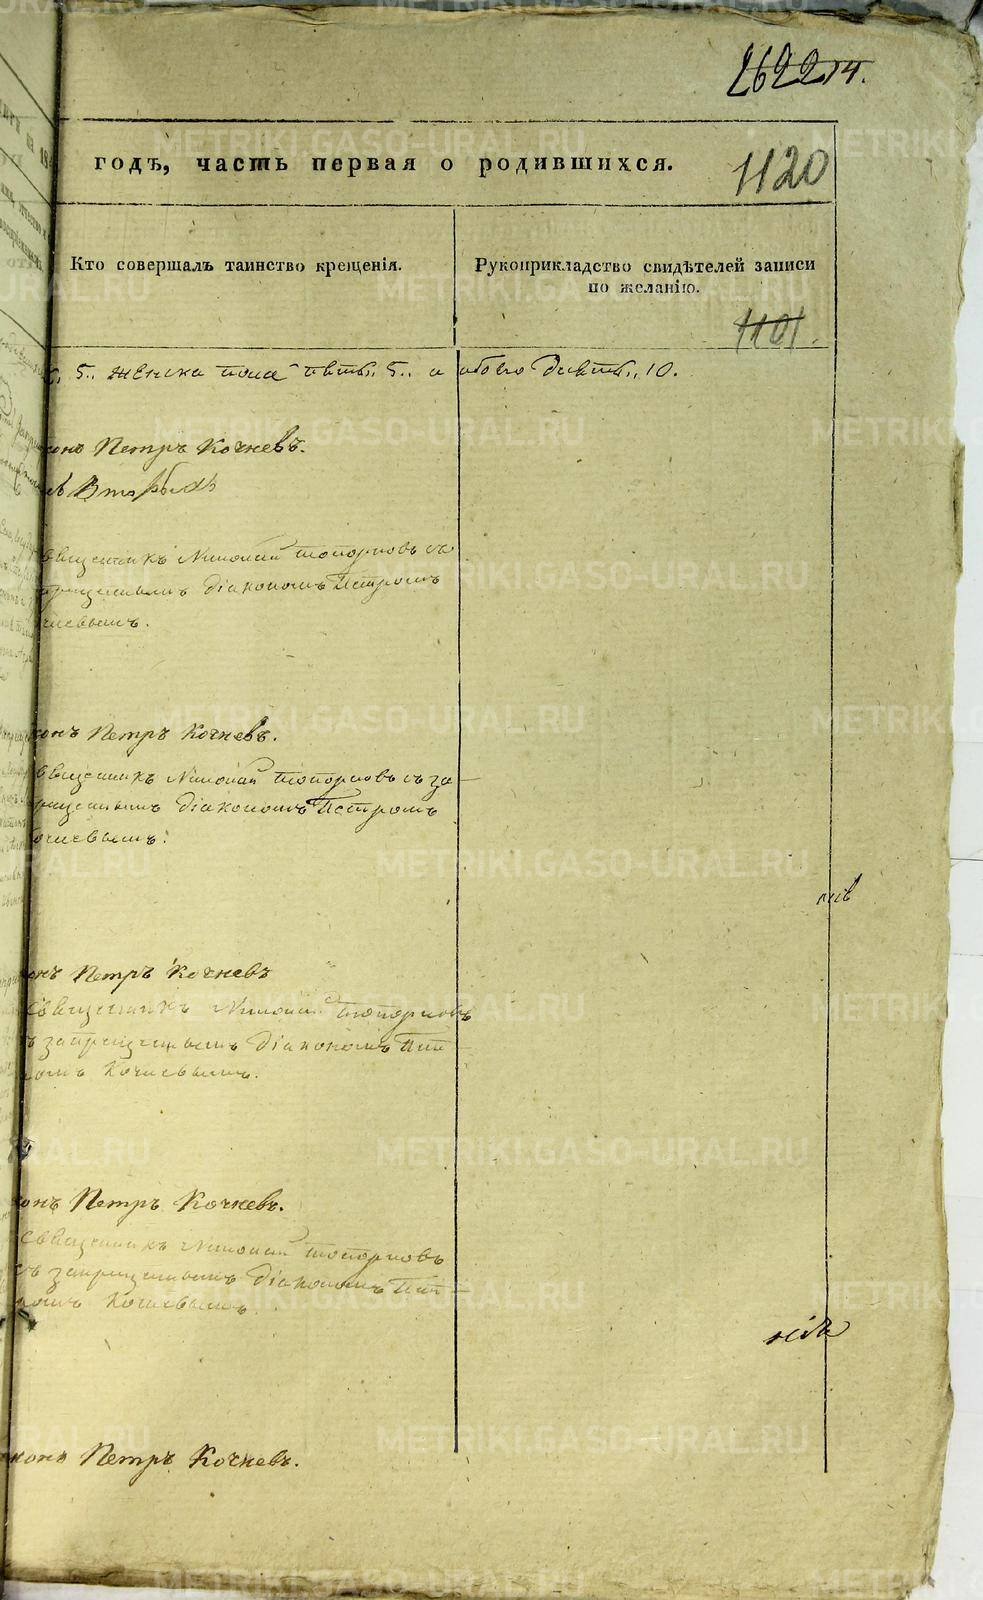 2622 14.
годъ, часть первая о родившихся.
1120
Кто совершалъ таинство крещенія.
Рукоприкладство свидѣтелей записи
по желанію.
1101.
5. женска пола пять, 5. и обоего Десять, 10.
конъ Петръ Кочневъ.
священникъ Николай Топорковъ съ
запрещеннымъ Діакономъ Петромъ
чневымъ.
конъ Петръ Кочневъ.
священникъ Николай Топорковъ съ за-
прещеннымъ Діакономъ Петромъ
Кочневымъ.
онъ Петръ Кочневъ
Священникъ Николай Топорковъ
съ запрещеннымъ Діакономъ Пет-
ромъ Кочневымъ.
конъ Петръ Кочневъ.
Священникъ Николай Топорковъ
съ запрещеннымъ Діакономъ Пет-
ромъ Кочневымъ.
конъ Петръ Кочневъ.
METRIKI.GASO-URAL.RU